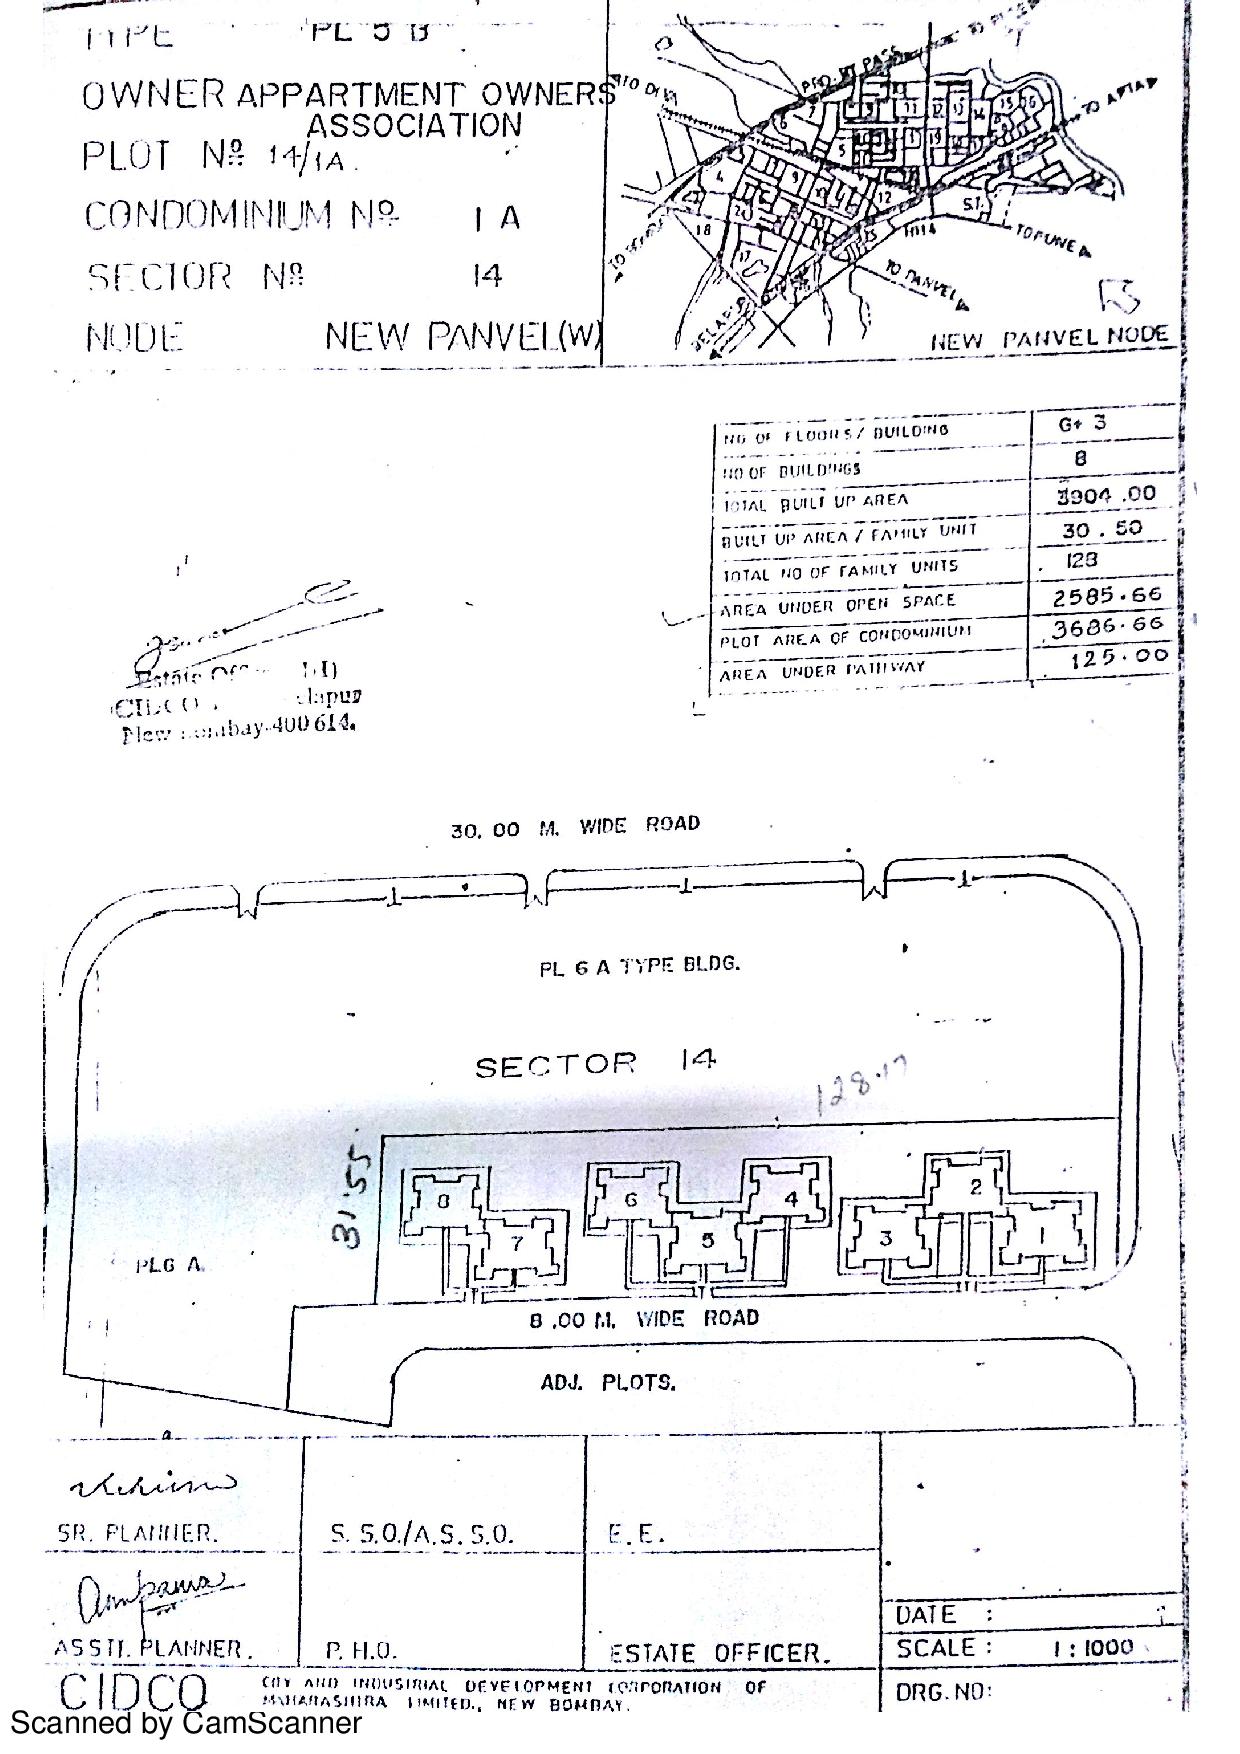 TYPE PL 5 B
OWNER APPARTMENT OWNERS
ASSOCIATION
PLOT Nº 14/1A.
CONDOMINIUM Nº 1 A
SECTOR Nº 14
NODE NEW PANVEL(W)
TO APTA
TO PUNE
TO PANVEL
S.T.
NEW PANVEL NODE
NO OF FLOORS/ BUILDING G+ 3
NO OF BUILDINGS 8
TOTAL BUILT UP AREA 3904.00
BUILT UP AREA / FAMILY UNIT 30.50
TOTAL NO OF FAMILY UNITS 128
AREA UNDER OPEN SPACE 2585.66
PLOT AREA OF CONDOMINIUM 3686.66
AREA UNDER PATHWAY 125.00
Estate
CIDCO
New 400 614.
30.00 M. WIDE ROAD
PL 6 A TYPE BLDG.
SECTOR 14
128.17
31.55
8 7 6 5 4 3 2 1
PL6 A.
8.00 M. WIDE ROAD
ADJ. PLOTS.
SR. PLANNER. S. S.O./A.S. S.O. E.E.
ASSTT. PLANNER. P. H.O. ESTATE OFFICER.
DATE :
SCALE : 1 : 1000
DRG. NO:
CIDCO CITY AND INDUSTRIAL DEVELOPMENT CORPORATION OF
MAHARASHTRA LIMITED., NEW BOMBAY.
Scanned by CamScanner